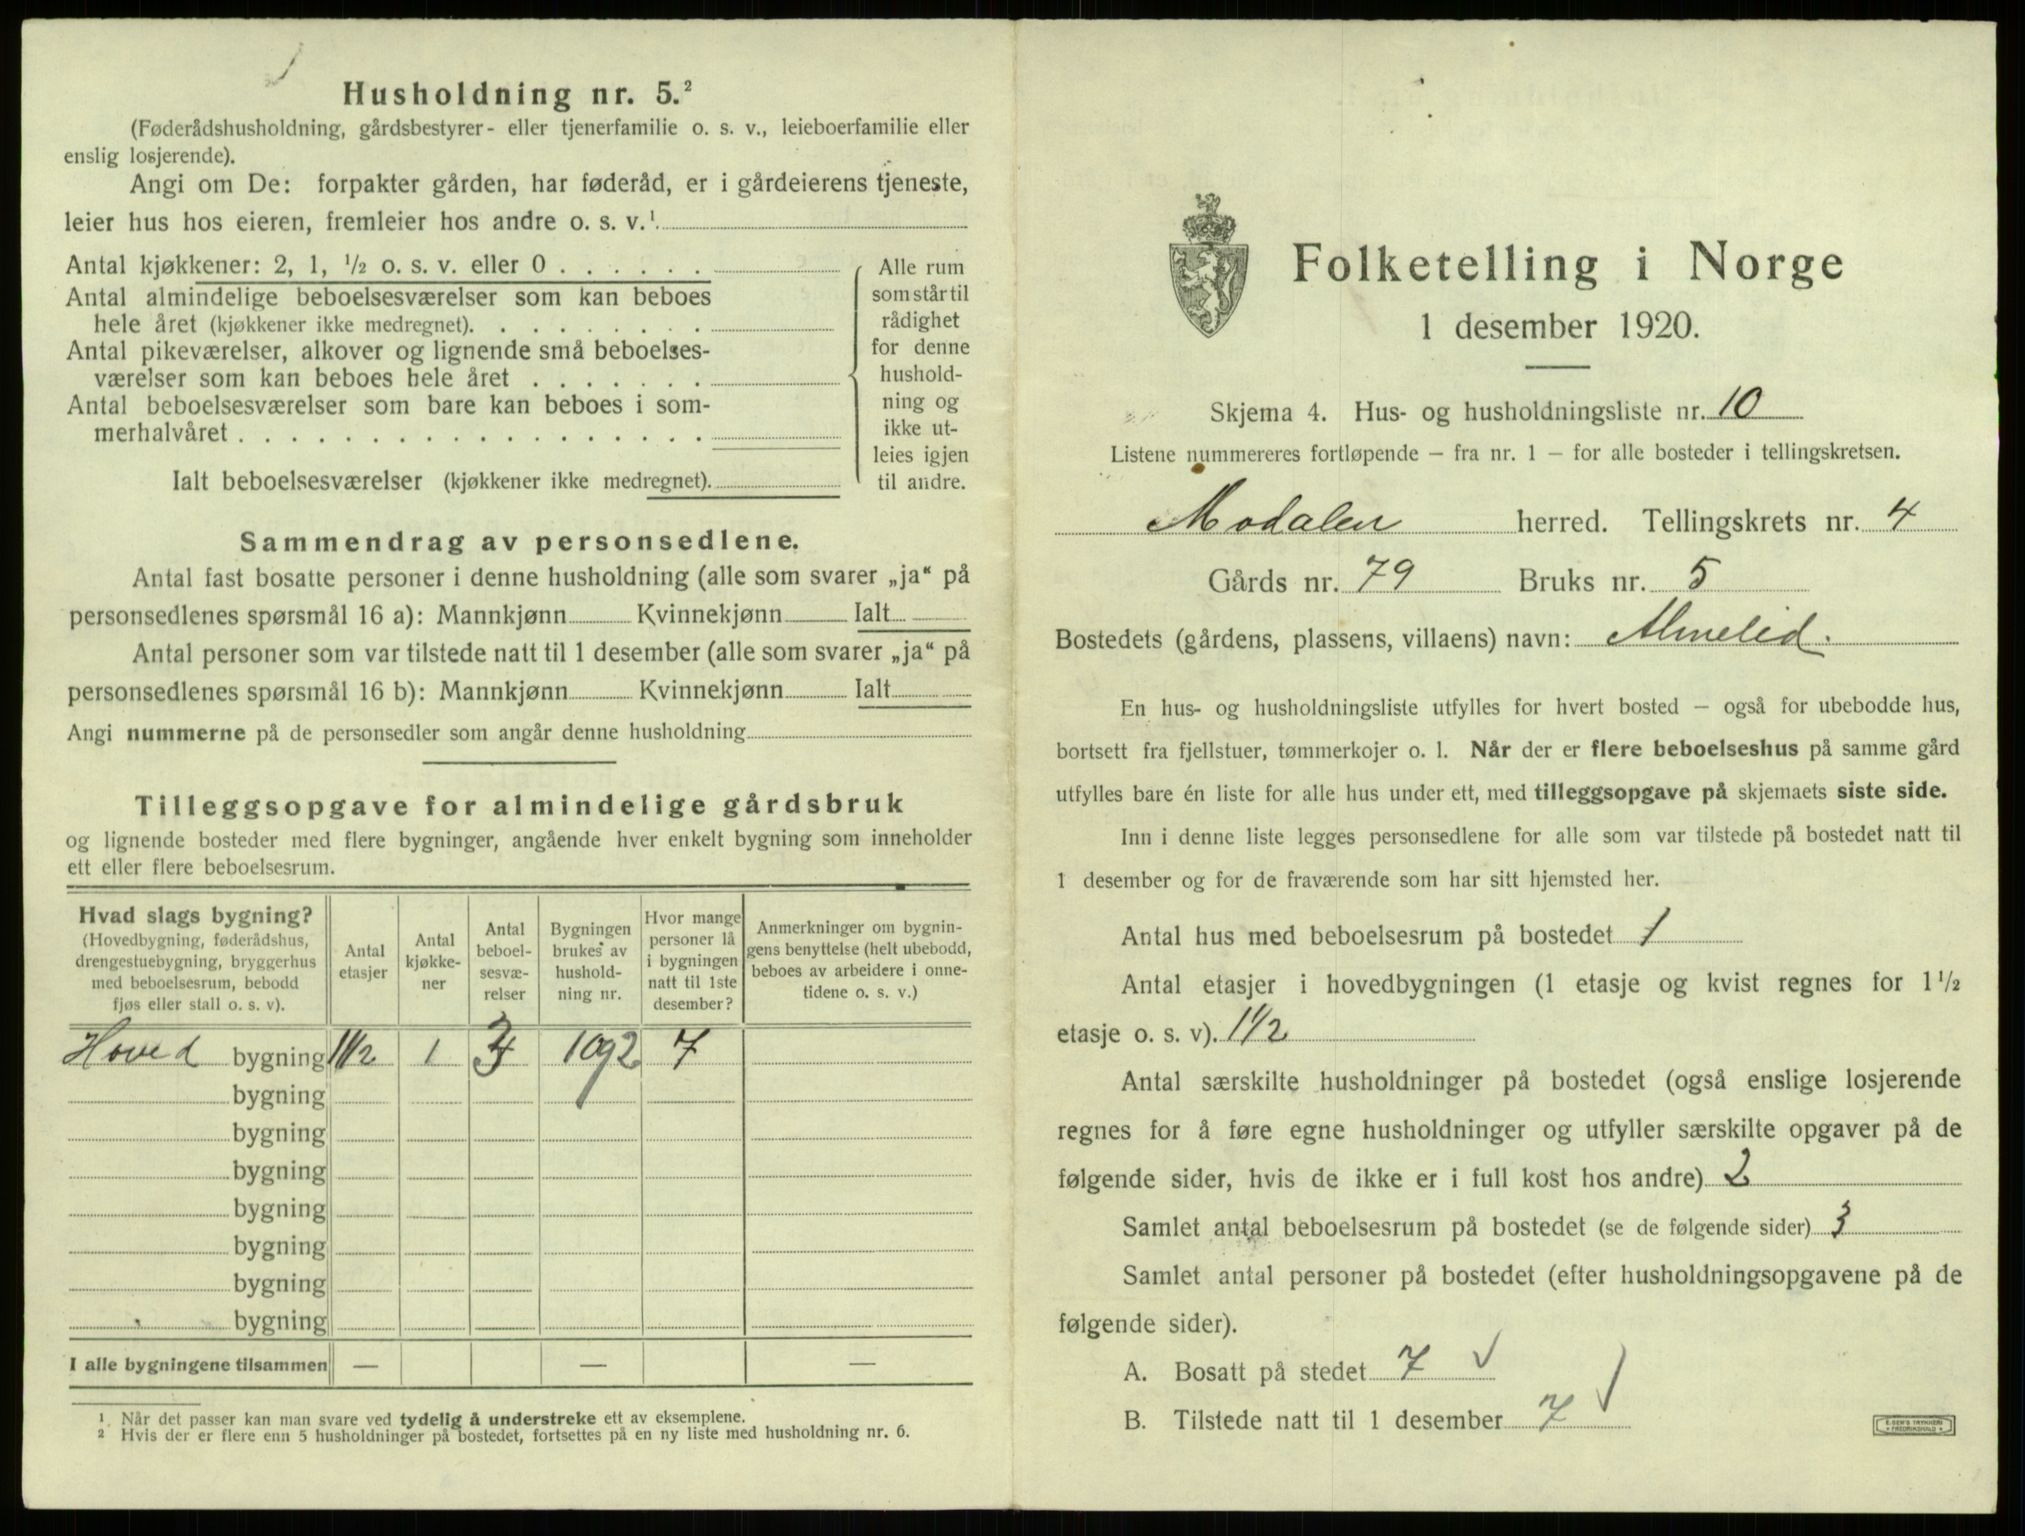 Husholdning nr. 5.²
(Føderådshusholdning, gårdsbestyrer- eller tjenerfamilie o. s. v., leieboerfamilie eller
enslig losjerende).
Angi om De: forpakter gården, har føderåd, er i gårdeierens tjeneste,
leier hus hos eieren, fremleier hos andre o. s. v.¹
Antal kjøkkener: 2, 1, ½ o. s. v. eller 0
Antal almindelige beboelsesværelser som kan beboes
hele året (kjøkkener ikke medregnet).
Antal pikeværelser, alkover og lignende små beboelses-
værelser som kan beboes hele året
Antal beboelsesværelser som bare kan beboes i som-
merhalvåret
Ialt beboelsesværelser (kjøkkener ikke medregnet).
Alle rum
som står til
rådighet
for denne
hushold-
ning og
ikke ut-
leies igjen
til andre.
Sammendrag av personsedlene.
Antal fast bosatte personer i denne husholdning (alle som svarer „ja“ på
personsedlenes spørsmål 16 a): Mannkjønn Kvinnekjønn Ialt
Antal personer som var tilstede natt til 1 desember (alle som svarer „ja“ på
personsedlenes spørsmål 16 b): Mannkjønn Kvinnekjønn Ialt
Angi nummerne på de personsedler som angår denne husholdning
Tilleggsopgave for almindelige gårdsbruk
og lignende bosteder med flere bygninger, angående hver enkelt bygning som inneholder
ett eller flere beboelsesrum.
Hvad slags bygning?
(Hovedbygning, føderådshus,
drengestuebygning, bryggerhus
med beboelsesrum, bebodd
fjøs eller stall o. s. v).
Antal
etasjer
Antal
kjøkke-
ner
Antal
beboel-
sesvæ-
relser
Bygningen
brukes av
hushold-
ning nr.
Hvor mange
personer lå
i bygningen
natt til 1ste
desember?
Anmerkninger om bygnin-
gens benyttelse (helt ubebodd,
beboes av arbeidere i onne-
tidene o. s. v.)
Hoved bygning 1½ 1 3 1 og 2 7
bygning
bygning
bygning
bygning
bygning
bygning
bygning
I alle bygningene tilsammen — — —
¹ Når det passer kan man svare ved tydelig å understreke ett av eksemplene.
² Hvis der er flere enn 5 husholdninger på bostedet, fortsettes på en ny liste med husholdning nr. 6.
Folketelling i Norge
1 desember 1920.
Skjema 4. Hus- og husholdningsliste nr. 10
Listene nummereres fortløpende – fra nr. 1 – for alle bosteder i tellingskretsen.
Modalen herred. Tellingskrets nr. 4
Gårds nr. 79 Bruks nr. 5
Bostedets (gårdens, plassens, villaens) navn: Almelid.
En hus- og husholdningsliste utfylles for hvert bosted – også for ubebodde hus,
bortsett fra fjellstuer, tømmerkojer o. l. Når der er flere beboelseshus på samme gård
utfylles bare én liste for alle hus under ett, med tilleggsopgave på skjemaets siste side.
Inn i denne liste legges personsedlene for alle som var tilstede på bostedet natt til
1 desember og for de fraværende som har sitt hjemsted her.
Antal hus med beboelsesrum på bostedet 1
Antal etasjer i hovedbygningen (1 etasje og kvist regnes for 1½
etasje o. s. v). 1½
Antal særskilte husholdninger på bostedet (også enslige losjerende
regnes for å føre egne husholdninger og utfyller særskilte opgaver på de
følgende sider, hvis de ikke er i full kost hos andre) 2
Samlet antal beboelsesrum på bostedet (se de følgende sider) 3
Samlet antal personer på bostedet (efter husholdningsopgavene på de
følgende sider).
A. Bosatt på stedet 7 √
B. Tilstede natt til 1 desember 7 √
E. SEM'S TRYKKERI
FREDRIKSHALD